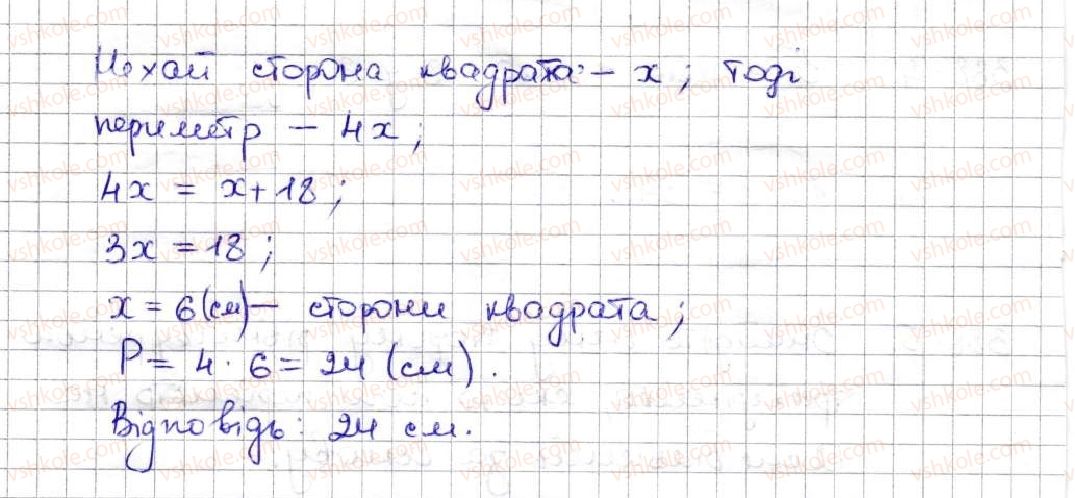 Нехай сторона квадрата – x; тоді
периметр – 4x;
4x = x + 18;
3x = 18;
x = 6 (см) – сторони квадрата;
P = 4 · 6 = 24 (см).
Відповідь: 24 см.